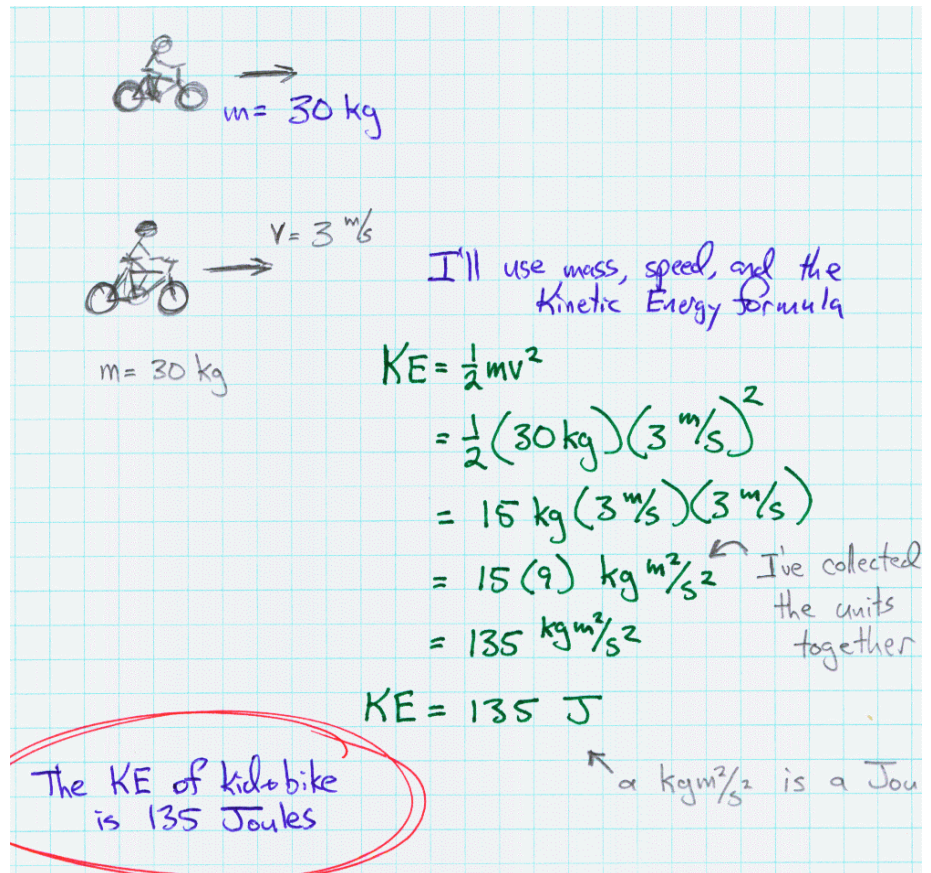 m= 30 kg
v= 3 m/s
m= 30 kg
I'll use mass, speed, and the
Kinetic Energy formula
KE = 1/2 mv²
= 1/2 (30 kg)(3 m/s)²
= 15 kg (3 m/s)(3 m/s)
= 15 (9) kg m²/s²
I've collected
the units
together
= 135 kg m²/s²
KE = 135 J
a kg m²/s² is a Jou
The KE of kid+bike
is 135 Joules